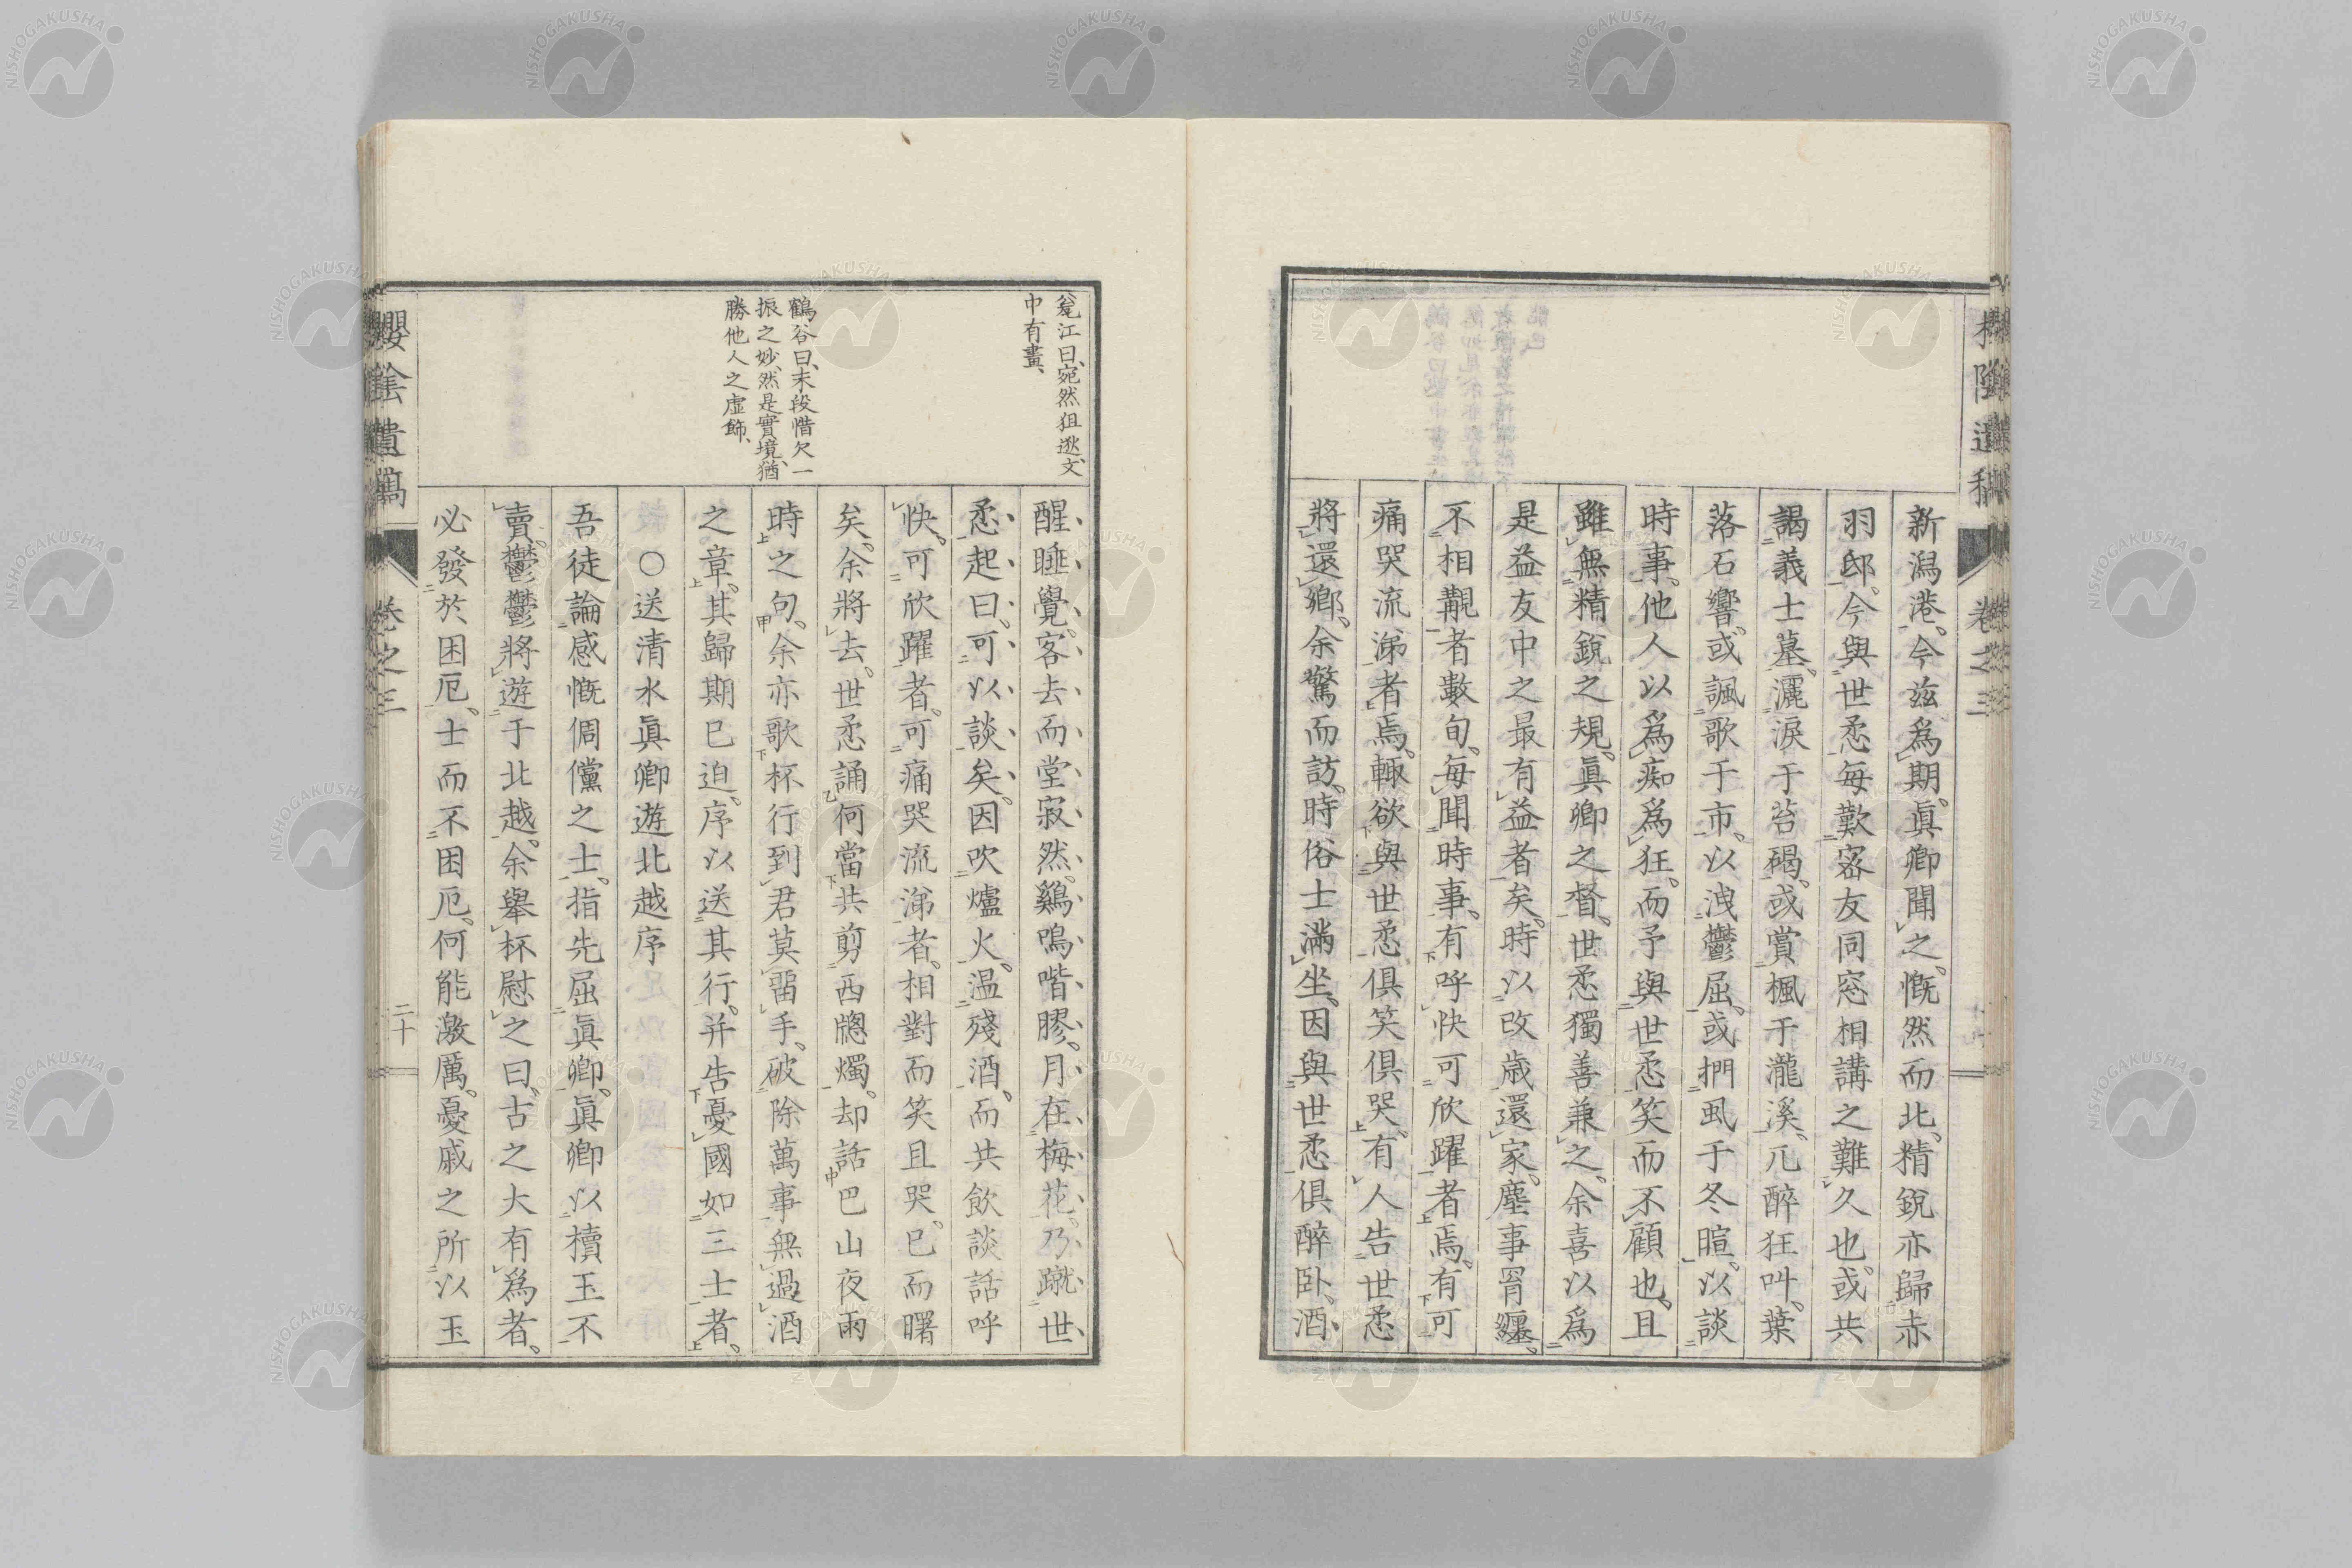 新潟港。今茲為期。眞卿聞之。慨然而北。精銳亦歸赤
羽邸。今與世柔每歎密友同窓相講之難久也。或共
謁義士墓。灑淚于苔碣。或賞楓于瀧溪。兀醉狂叫。葉
落石響。或諷歌于市。以洩鬱屈。或捫虱于冬暄。以談
時事。他人以爲痴爲狂。而予與世柔笑而不顧也。且
雖無精銳之規。眞卿之督。世柔獨善兼之。余喜以爲
是益友中之最有益者矣。時以改歲還家。塵事胃纏。
不相覯者數旬。每聞時事。有呼快可欣躍者焉。有可
痛哭流涕者焉。輙欲與世柔俱笑俱哭。有人告世柔
將還鄉。余驚而訪。時俗士滿坐。因與世柔俱醉臥。酒
卷之三
鶴谷曰、末段惜欠一
振之妙、然是實境、猶
勝他人之虛飾、
江曰、宛然狙逖、文
中有畫、
醒睡覺。客去而堂寂然。鷄鳴喈膠。月在梅花。乃蹴世
柔起曰。可以談矣。因吹爐火。温殘酒。而共飲談話呼
快。可欣躍者。可痛哭流涕者。相對而笑且哭。已而曙
矣。余將去。世柔誦何當共剪西牕燭。却話巴山夜雨
時之句。余亦歌杯行到君莫畱手。破除萬事無過酒
之章。其歸期已迫。序以送其行。并告憂國如三士者。
○送清水眞卿遊北越序
吾徒論感慨倜儻之士。指先屈眞卿。眞卿以櫝玉不
賣。鬱鬱將遊于北越。余舉杯慰之曰。古之大有爲者。
必發於困厄。士而不困厄。何能激厲。憂戚之所以玉
櫻陰遺稿
卷之三
二十